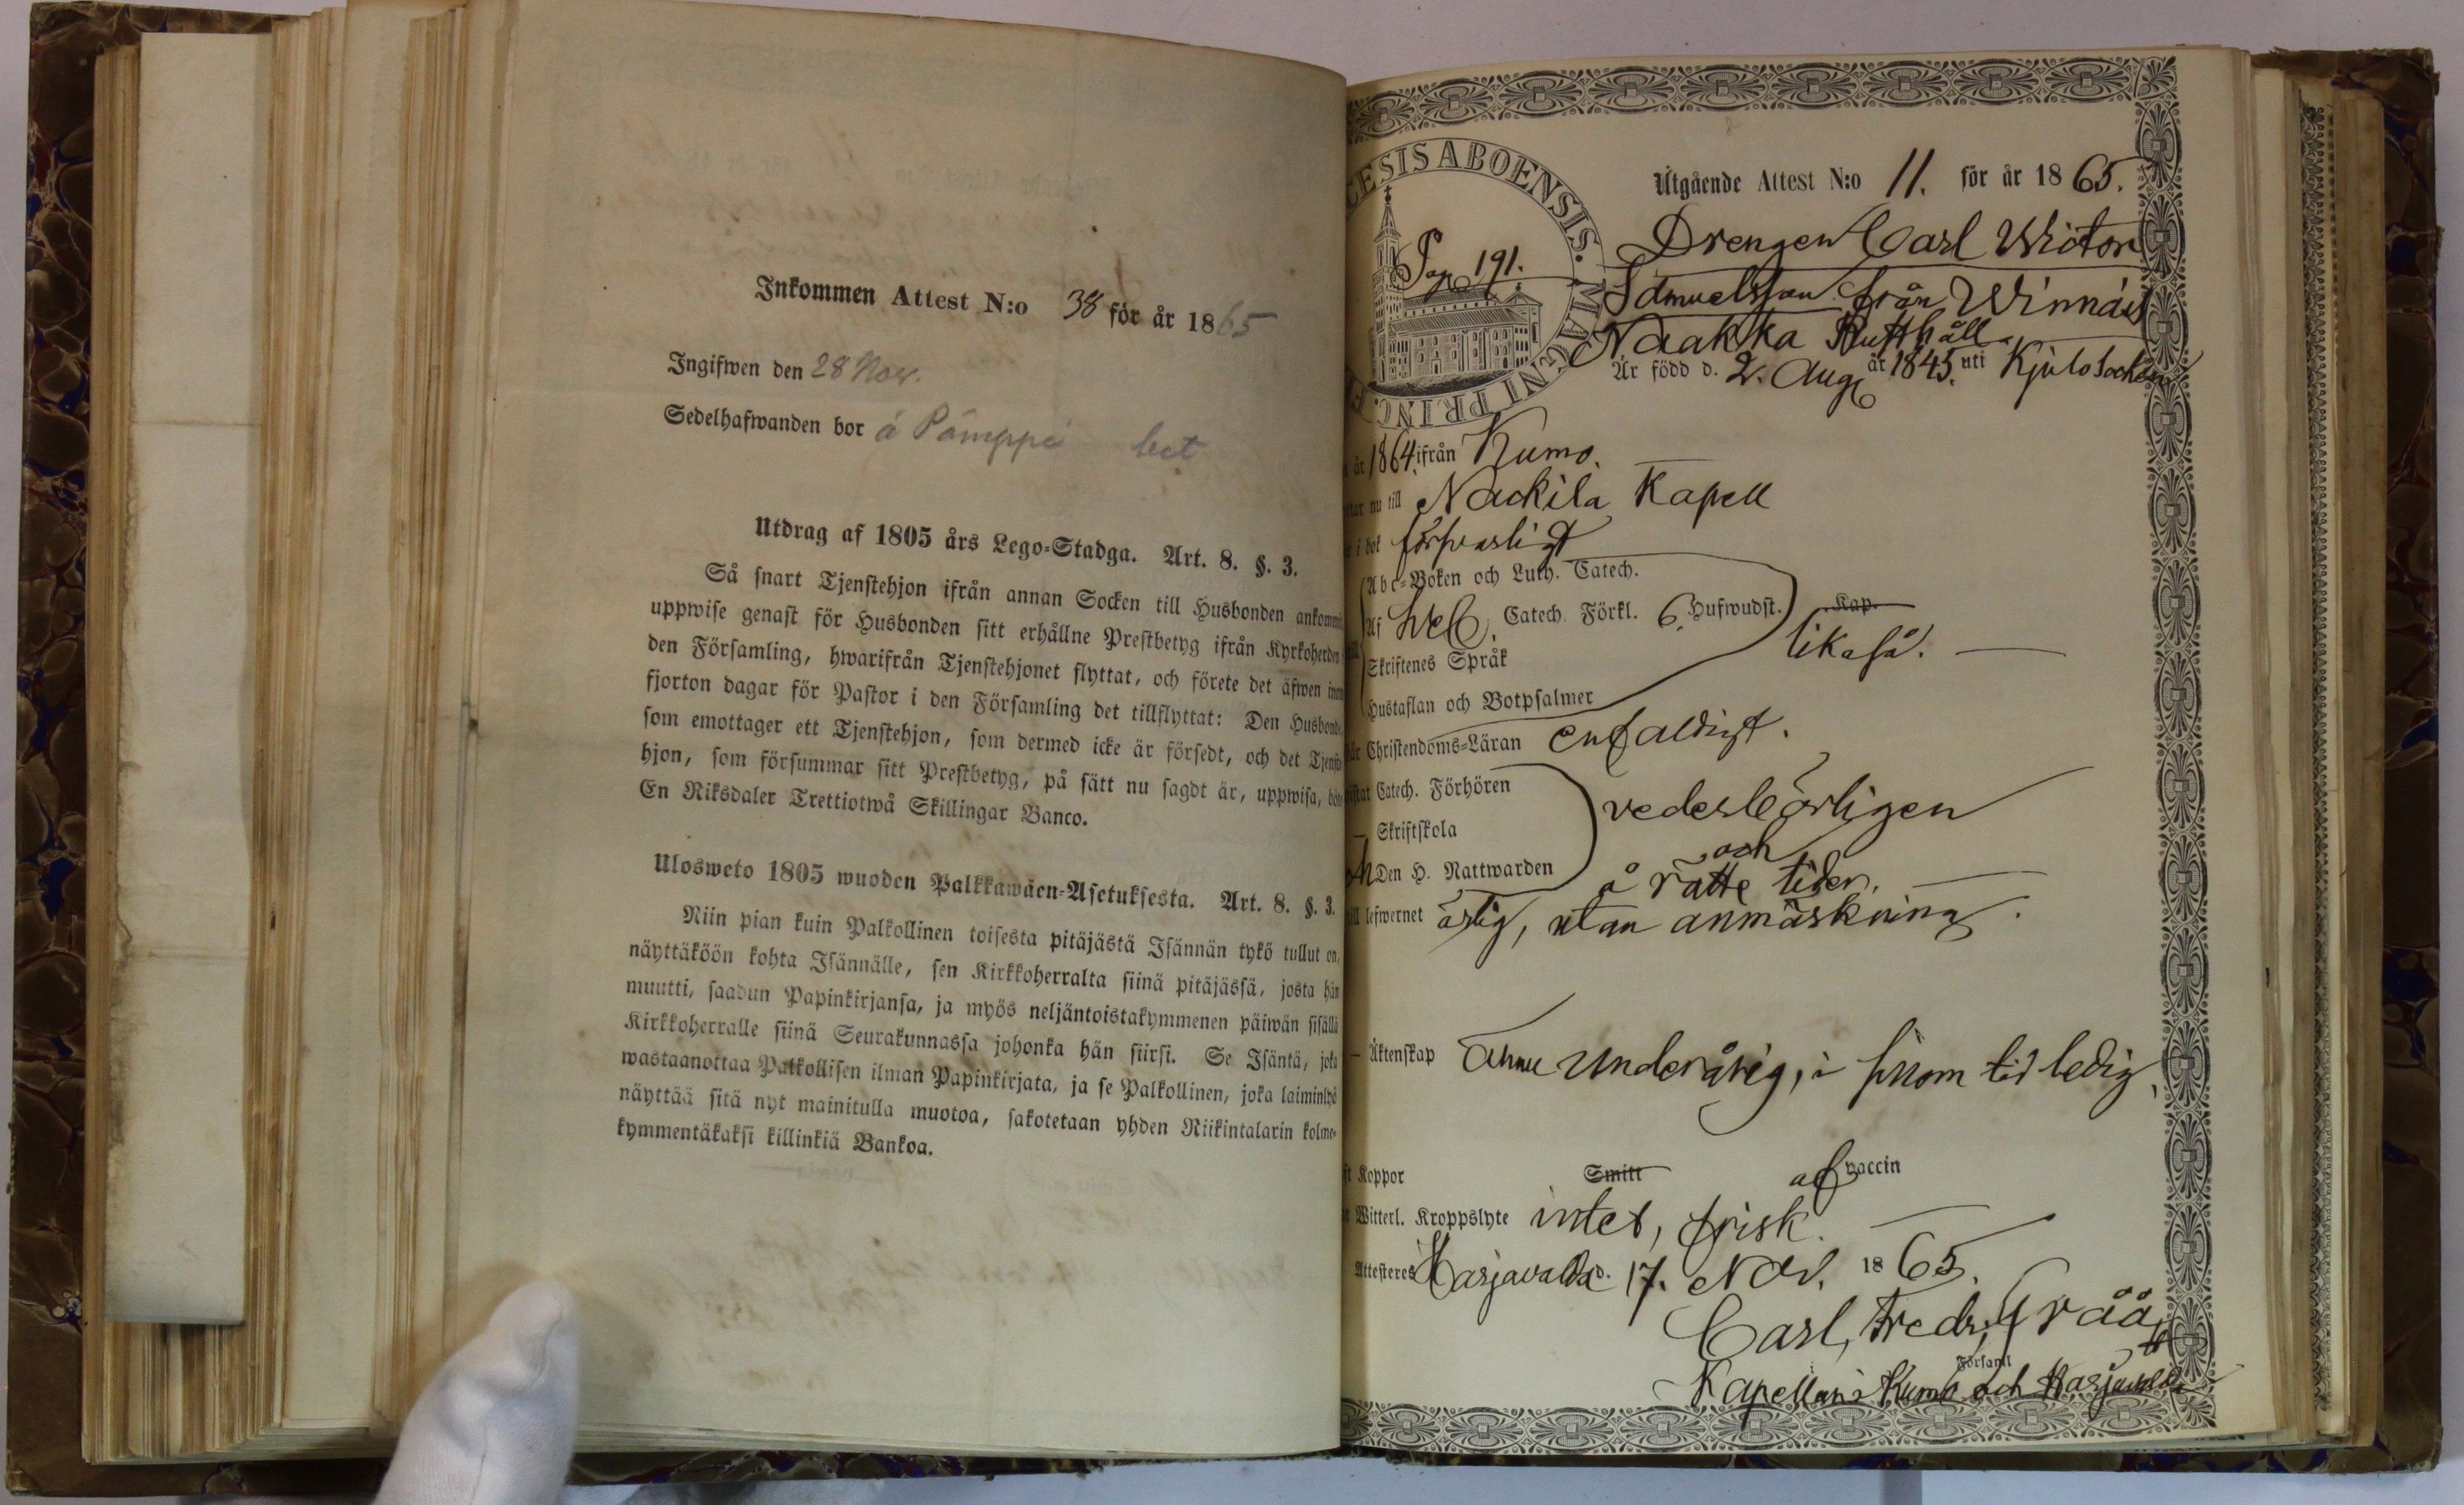 Inkommen Attest N:o 38 för år 1865
Ingifwen den 28 Nov.
Sedelhafwanden bor å Pämppä
Utdrag af 1805 års Lego-Stadga. Art. 8. §. 3.
Så snart Tjenstehjon ifrån annan Socken till Husbonden ankommit
uppwise genast för Husbonden sitt erhållne Prestbetyg ifrån Kyrkoherden
den Församling, hwarifrån Tjenstehjonet flyttat, och förete det äfwen inom
fjorton dagar för Pastor i den Församling det tillflyttat: Den Husbonde
som emottager ett Tjenstehjon, som dermed icke är försedt, och det Tjenste
hjon, som försummar sitt Prestbetyg, på sätt nu sagdt är, uppwisa, böte
En Riksdaler Trettiotwå Skillingar Banco.
Ulosweto 1805 wuoden Palkkawäen-Asetuksesta. Art. 8. §. 3.
Niin pian kuin Palkollinen toisesta pitäjästä Isännän tykö tullut on,
näyttäköön kohta Isännälle, sen Kirkkoherralta siinä pitäjässä, josta hän
muutti, saadun Papinkirjansa, ja myös neljäntoistakymmenen päiwän sisällä
Kirkkoherralle siinä Seurakunnassa johonka hän siirsi. Se Isäntä, joka
wastaanottaa Palkollisen ilman Papinkirjata, ja se Palkollinen, joka laiminlyö
näyttää sitä nyt mainitulla muotoa, sakotetaan yhden Riikintalarin kolme-
kymmentäkaksi killinkiä Bankoa.
ESIS ABOENSIS. MAGNI PRINC. F
Pag 191.
Utgående Attest N:o 11. för år 1865.
Drengen Carl Wictor
Samuelsson från Winnäs
Naakka Rusthåll
Är född d. 2. Aug år 1845. uti Kjulo Socken
år 1864 ifrån Kumo.
ttar nu till Nackila Kapell
r i bok försvarligt
Abc-Boken och Luth. Catech.
Af Catech. Förkl. 6. Hufwudst. Kap.
likaså.
Skriftenes Språk
Hustaflan och Botpsalmer
tår Christendoms-Läran enfaldigt.
istat Catech. Förhören
vederbörligen
— Skriftskola
och
Den H. Nattwarden
å rätte tider.
till lefwernet ärlig, utan anmärkning.
— Äktenskap ännu underårig, i sinom tid ledig
ft Koppor Smitt af vaccin
r Witterl. Kroppslyte intet, frisk.
Attesteres Harjavalda d. 17. Nov. 1865.
Carl Fredr. Gråå
Församl
Kapellan i Kumo och Harjavalda